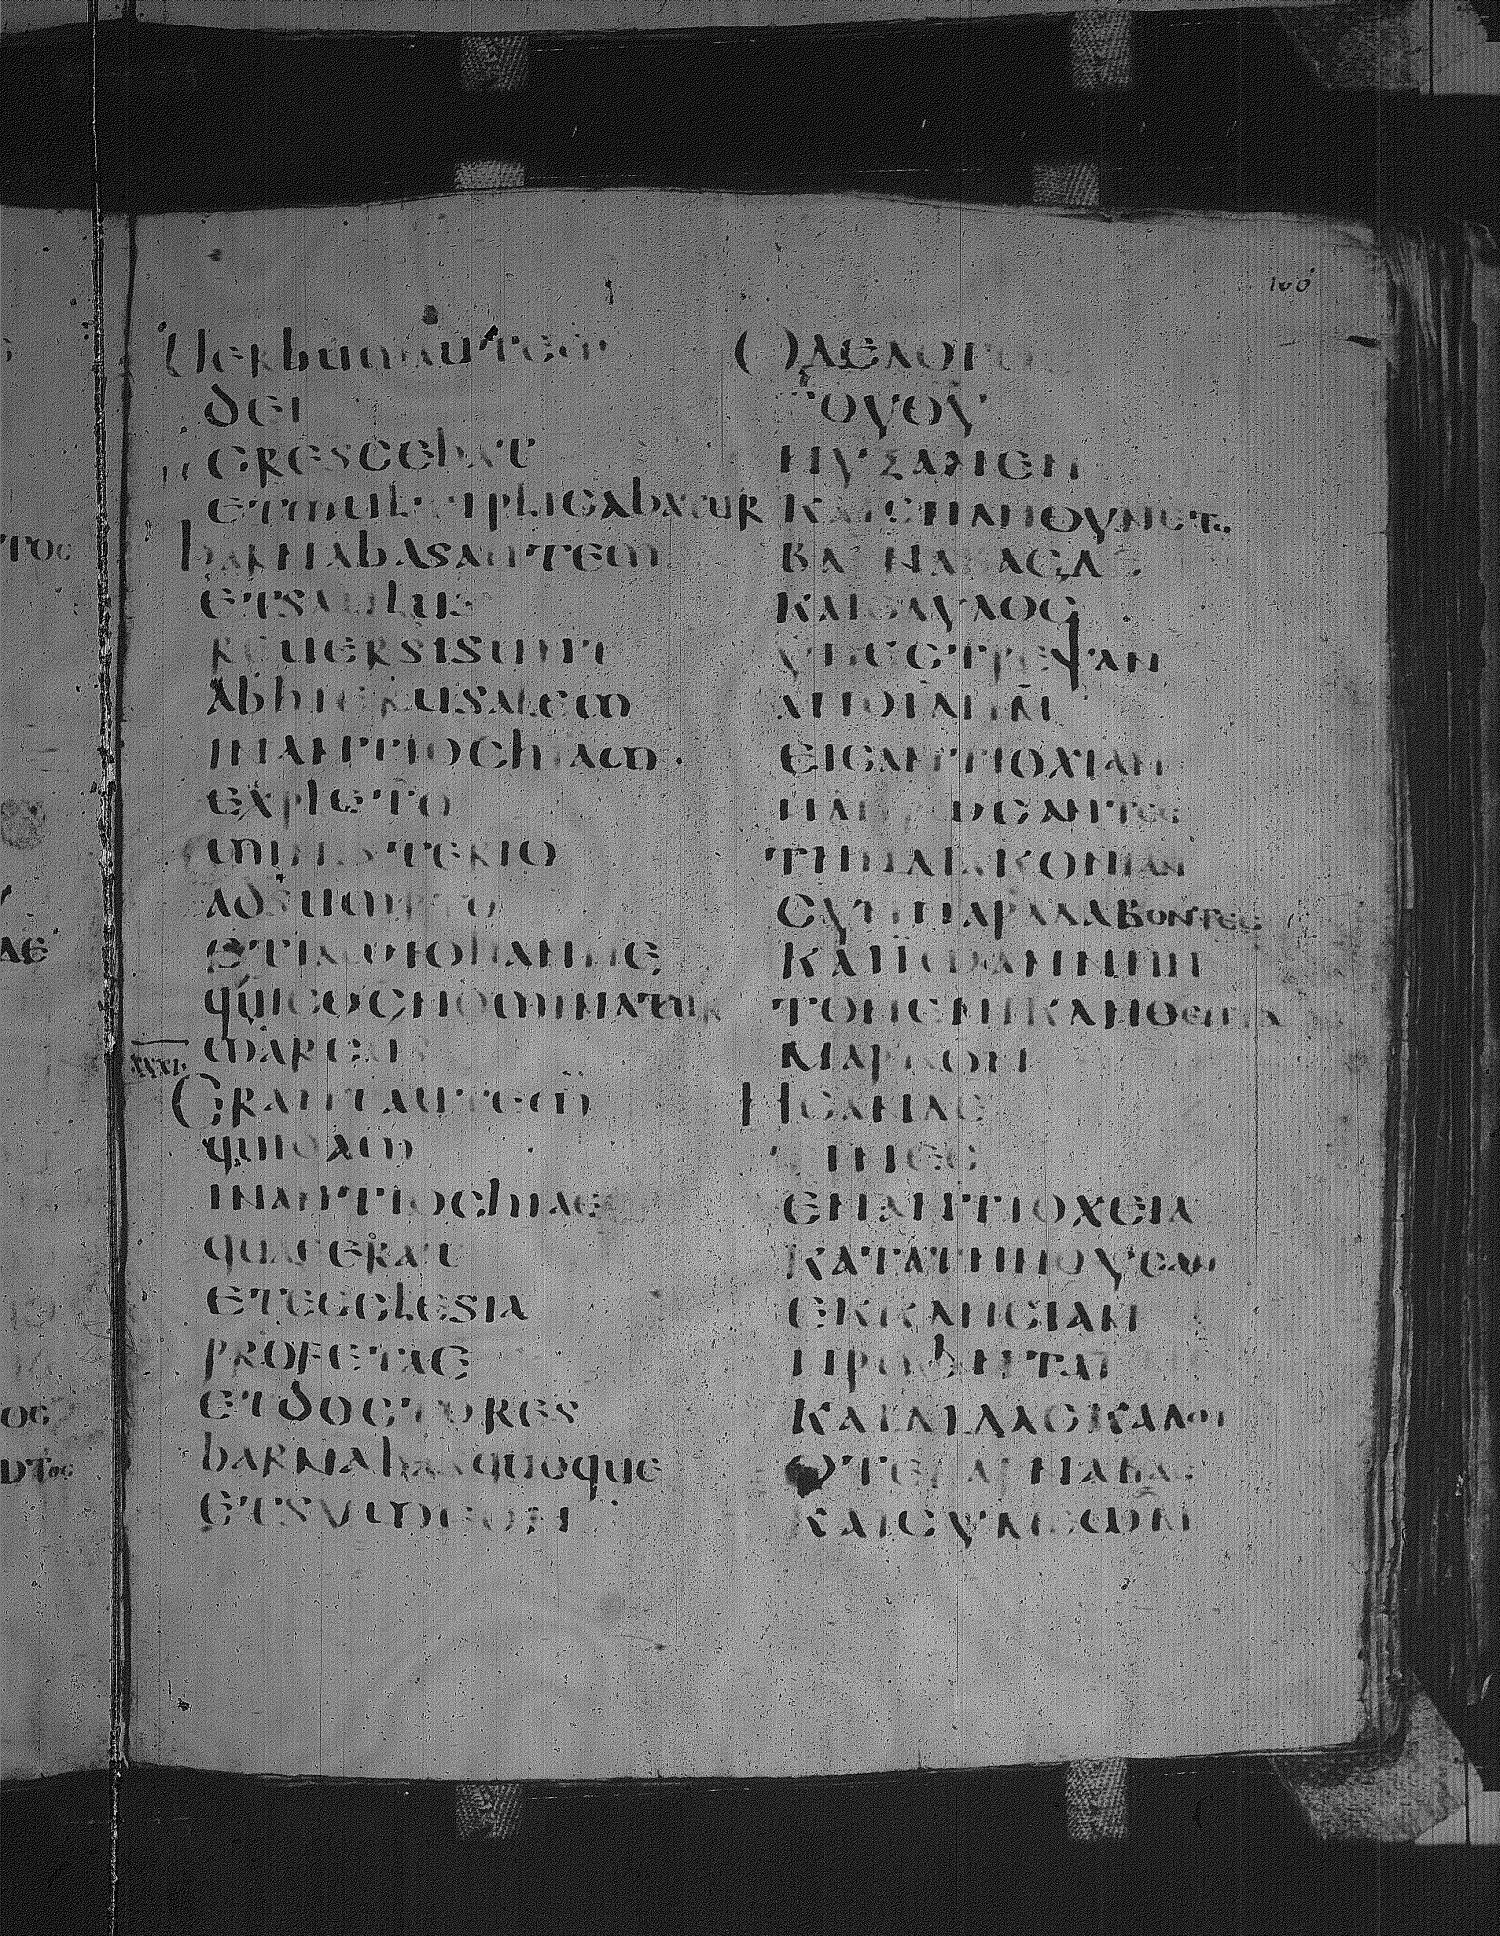 Uerbumautem
dei
crescebat
etmultiplicabatur
barnabasautem
etsaulus
reuersisunt
abhierusalem
inantiochiam·
expleto
ministerio
adsumpto
quicognominatur
marcus
Erantautem
quidam
inantiochiae
quaeerat
etecclesia
profetae
etdoctores
barnabasquoque
etsymeon
ΟΔΕΛΟΓΟϹ
ΤΟΥΘΥ
ΗΥΞΑΝΕΝ
ΚΑΙΕΠΛΗΘΥΝΕΤΟ
ΒΑΡΝΑΒΑϹΔΕ
ΚΑΙϹΑΥΛΟϹ
ΥΠΕϹΤΡΕΨΑΝ
ΑΠΟΙΛΗΜ
ΕΙϹΑΝΤΙΟΧΙΑΝ
ΠΛΗΡΩϹΑΝΤΕϹ
ΤΗΝΔΙΑΚΟΝΙΑΝ
ϹΥΝΠΑΡΑΛΑΒΟΝΤΕϹ
ΚΑΙΙΩΑΝΝΗΝ
ΤΟΝΕΠΙΚΛΗΘΕΝΤΑ
ΜΑΡΚΟΝ
ΗϹΑΝΔΕ
ΤΙΝΕϹ
ΕΝΑΝΤΙΟΧΕΙΑ
ΚΑΤΑΤΗΝΟΥϹΑΝ
ΕΚΚΛΗϹΙΑΝ
ΠΡΟΦΗΤΑΙ
ΚΑΙΔΙΔΑϹΚΑΛΟΙ
ΟΤΕΒΑΡΝΑΒΑϹ
ΚΑΙϹΥΜΕΩΝ